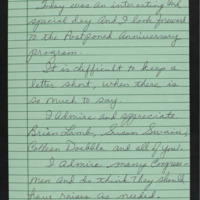 Today was an interesting and
special day and I look forward
to the Postponed Anniversary
program.
It is difficult to keep a
letter short, when there is
so much to say.
I admire and appreciate
Brian Lamb, Susan Swain,
Colleen Doebble and all of you.
I admire many Congress-
men and do think they should
have raises as needed.